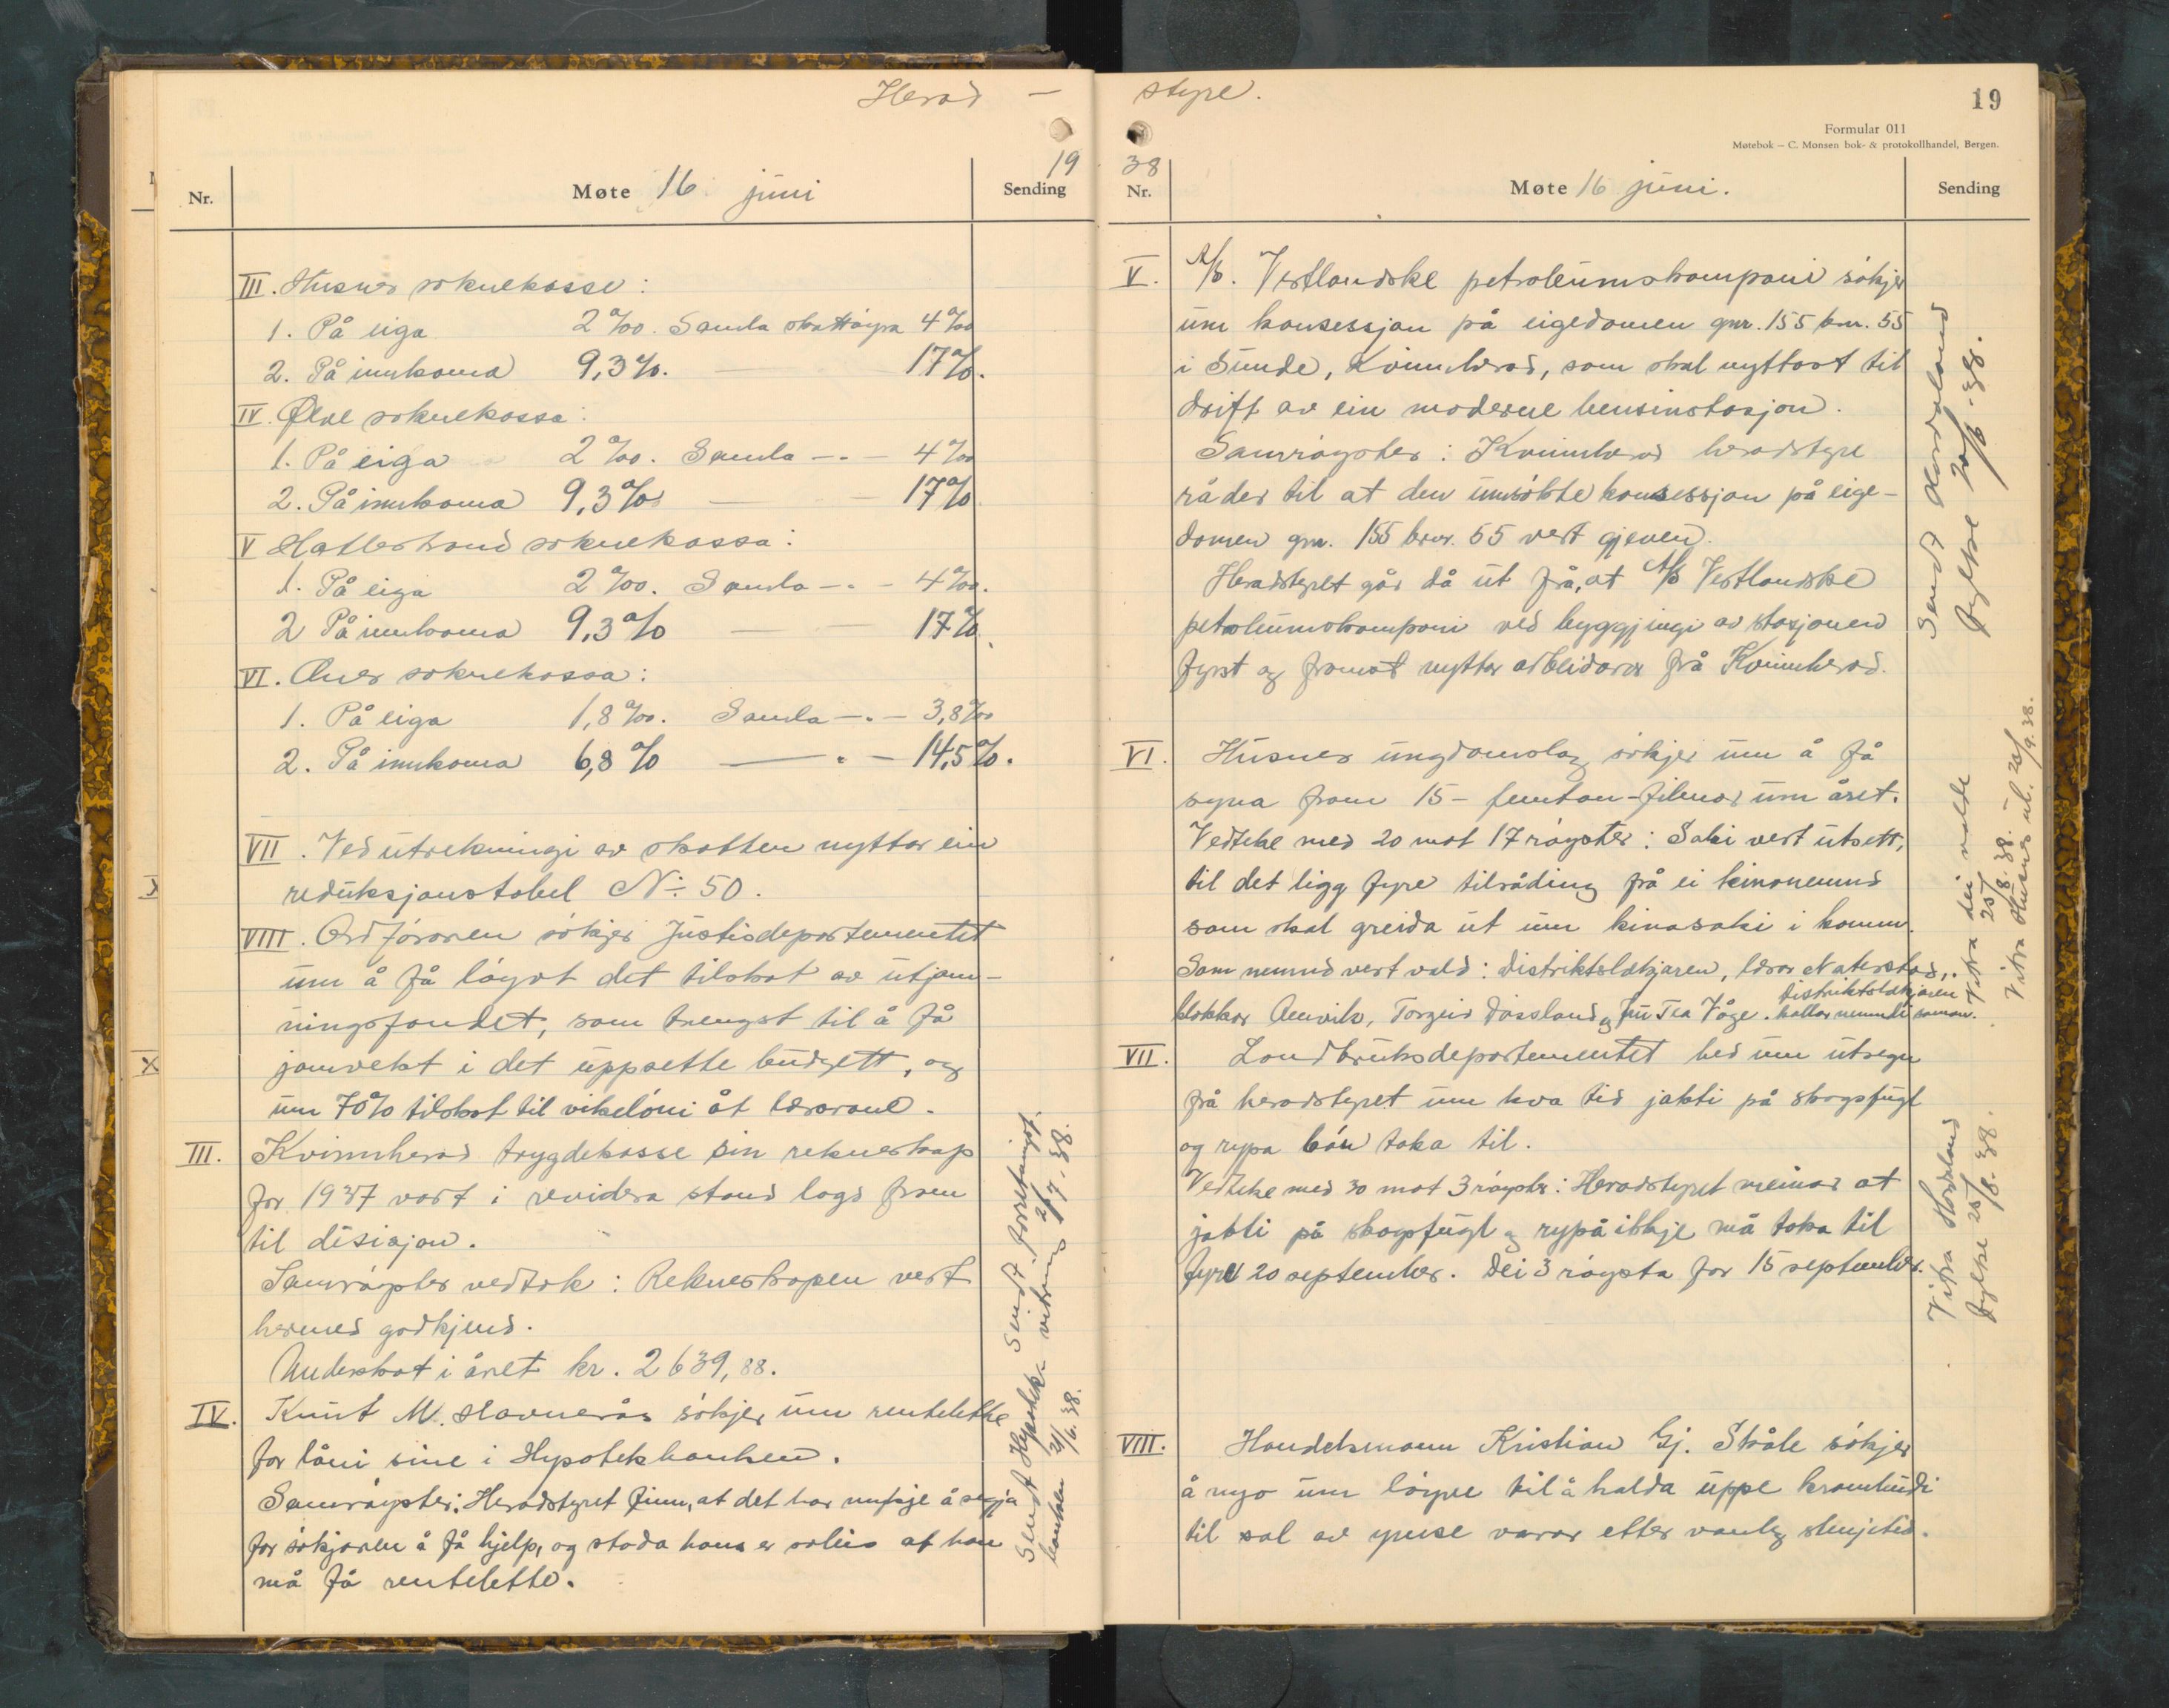 Herad –
19
Nr.
Møte 16. juni
Sending
III. Husnes soknekasse:
1. På eiga 2 ‰. Samla skattöyra 4 ‰
2. På innkoma 9,3 %. — 17 %.
IV. Ølve soknekassa:
1. På eiga 2 ‰. Samla -.- 4 ‰
2. På innkoma 9,3 % — 17 %
V Hatlestrand soknekassa:
1. På eiga 2 ‰. Samla -.- 4 ‰.
2 På innkoma 9,3 % — 17 %.
VI. Ænes soknekassa:
1. På eiga 1,8 ‰. Samla -.- 3,8 ‰
2. På innkoma 6,8 % —.- 14,5 %.
VII. Ved utrekningi av skatten nyttar ein
reduksjonstabel No 50.
VIII. Ordföraren sökjer Justisdepartementet
um å få löyvt det tilskot av utjam-
ningsfondet, som trengst til å få
jamvekt i det uppsette budgett, og
um 70% tilskot til vikelöni åt lærarane.
III. Kvinnherad trygdekasse sin rekneskap
for 1937 vart i revidera stand lagd fram
til desisjon.
Samröystes vedtok: Rekneskapen vert
hermed godkjend.
Underskot i året kr. 2639,88.
IV. Knut M. Havnerås sökjer um rentelette
for låni sine i Hypotekbanken.
Samröystes: Heradstyret finn, at det har mykje å segja
for sökjaren å få hjelp, og stoda hans er soleis at han
må få rentelette.
Sendt Hypotek-
banken 21/6.38.
2/7.38.
styre.
19
Formular 011
Møtebok – C. Monsen bok- & protokollhandel, Bergen.
38
Nr.
Møte 16 juni.
Sending
V. A/S. Vestlandske petroleumskompani sökjer
um konsessjon på eigedomen gnr. 155 bnr. 55
i Sunde, Kvinnherad, som skal nyttast til
drift av ein moderne bensinstasjon.
Samröystes: Kvinnherad heradstyre
råder til at den umsökte konsessjon på eige-
domen gnr. 155 bnr. 55 vert gjeven.
Heradstyret går då ut frå, at A/S Vestlandske
petroleumskompani ved byggjingi av stasjonen
fyrst og fremst nyttar arbeidarar frå Kvinnherad.
Sendt Hordaland
fylke 20/6-38.
VI. Husnes ungdomslag sökjer um å få
syna fram 15 - femtan - filmar um året.
Vedteke med 20 mot 17 röyster: Saki vert utsett,
til det ligg fyre tilråding frå ei kinonemnd
som skal greida ut um kinosaki i komm.
Som nemnd vert vald: Distriktslækjaren, lærar Naterstad,
klokkar Amvik, Torgeir Dåssland og fru Tea Våge. Distriktslækjaren
kallar nemndi saman.
Vitra dei valde
25/8.38.
Vitra Husnes ul. 23/9.38.
VII. Landbruksdepartementet bed um utsegn
frå heradstyret um kva tid jakti på skogsfugl
og rypa bör taka til.
Vedteke med 30 mot 3 röyster: Heradstyret meinar at
jakti på skogsfugl og rypå ikkje må taka til
fyre 20 september. Dei 3 röysta for 15 september.
Vitra Hordaland
fylke 25/8.38.
VIII. Handelsmann Kristian Gj. Skåle sökjer
å nyo um löyve til å halda uppe krambudi
til sal av ymse varor etter vanleg stengjetid.